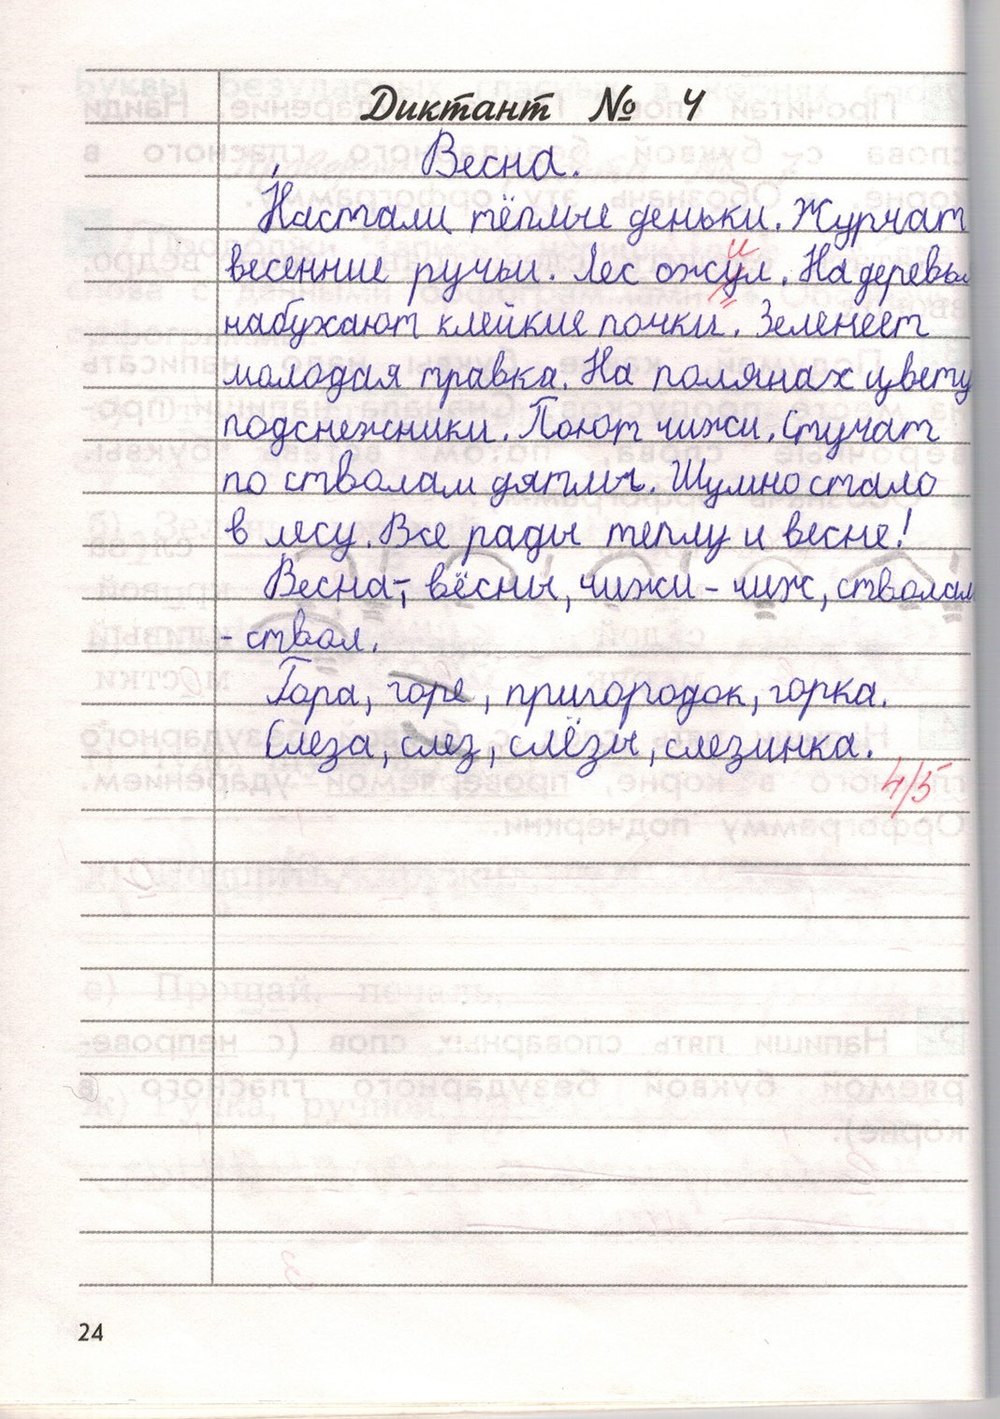 Диктант № 4
Весна.
Настали тёплые деньки. Журчат
весенние ручьи. Лес ожул. На деревьях
и
набухают клейкие почки. Зеленеет
молодая травка. На полянах цвету
подснежники. Поют чижи. Стучат
по стволам дятлы. Шумно стало
в лесу. Все рады теплу и весне!
Весна-, вёсны, чижи - чиж, стволам
- ствол.
Гора, горе, пригородок, горка.
Слеза, слез, слёзы, слезинка.
4/5
24